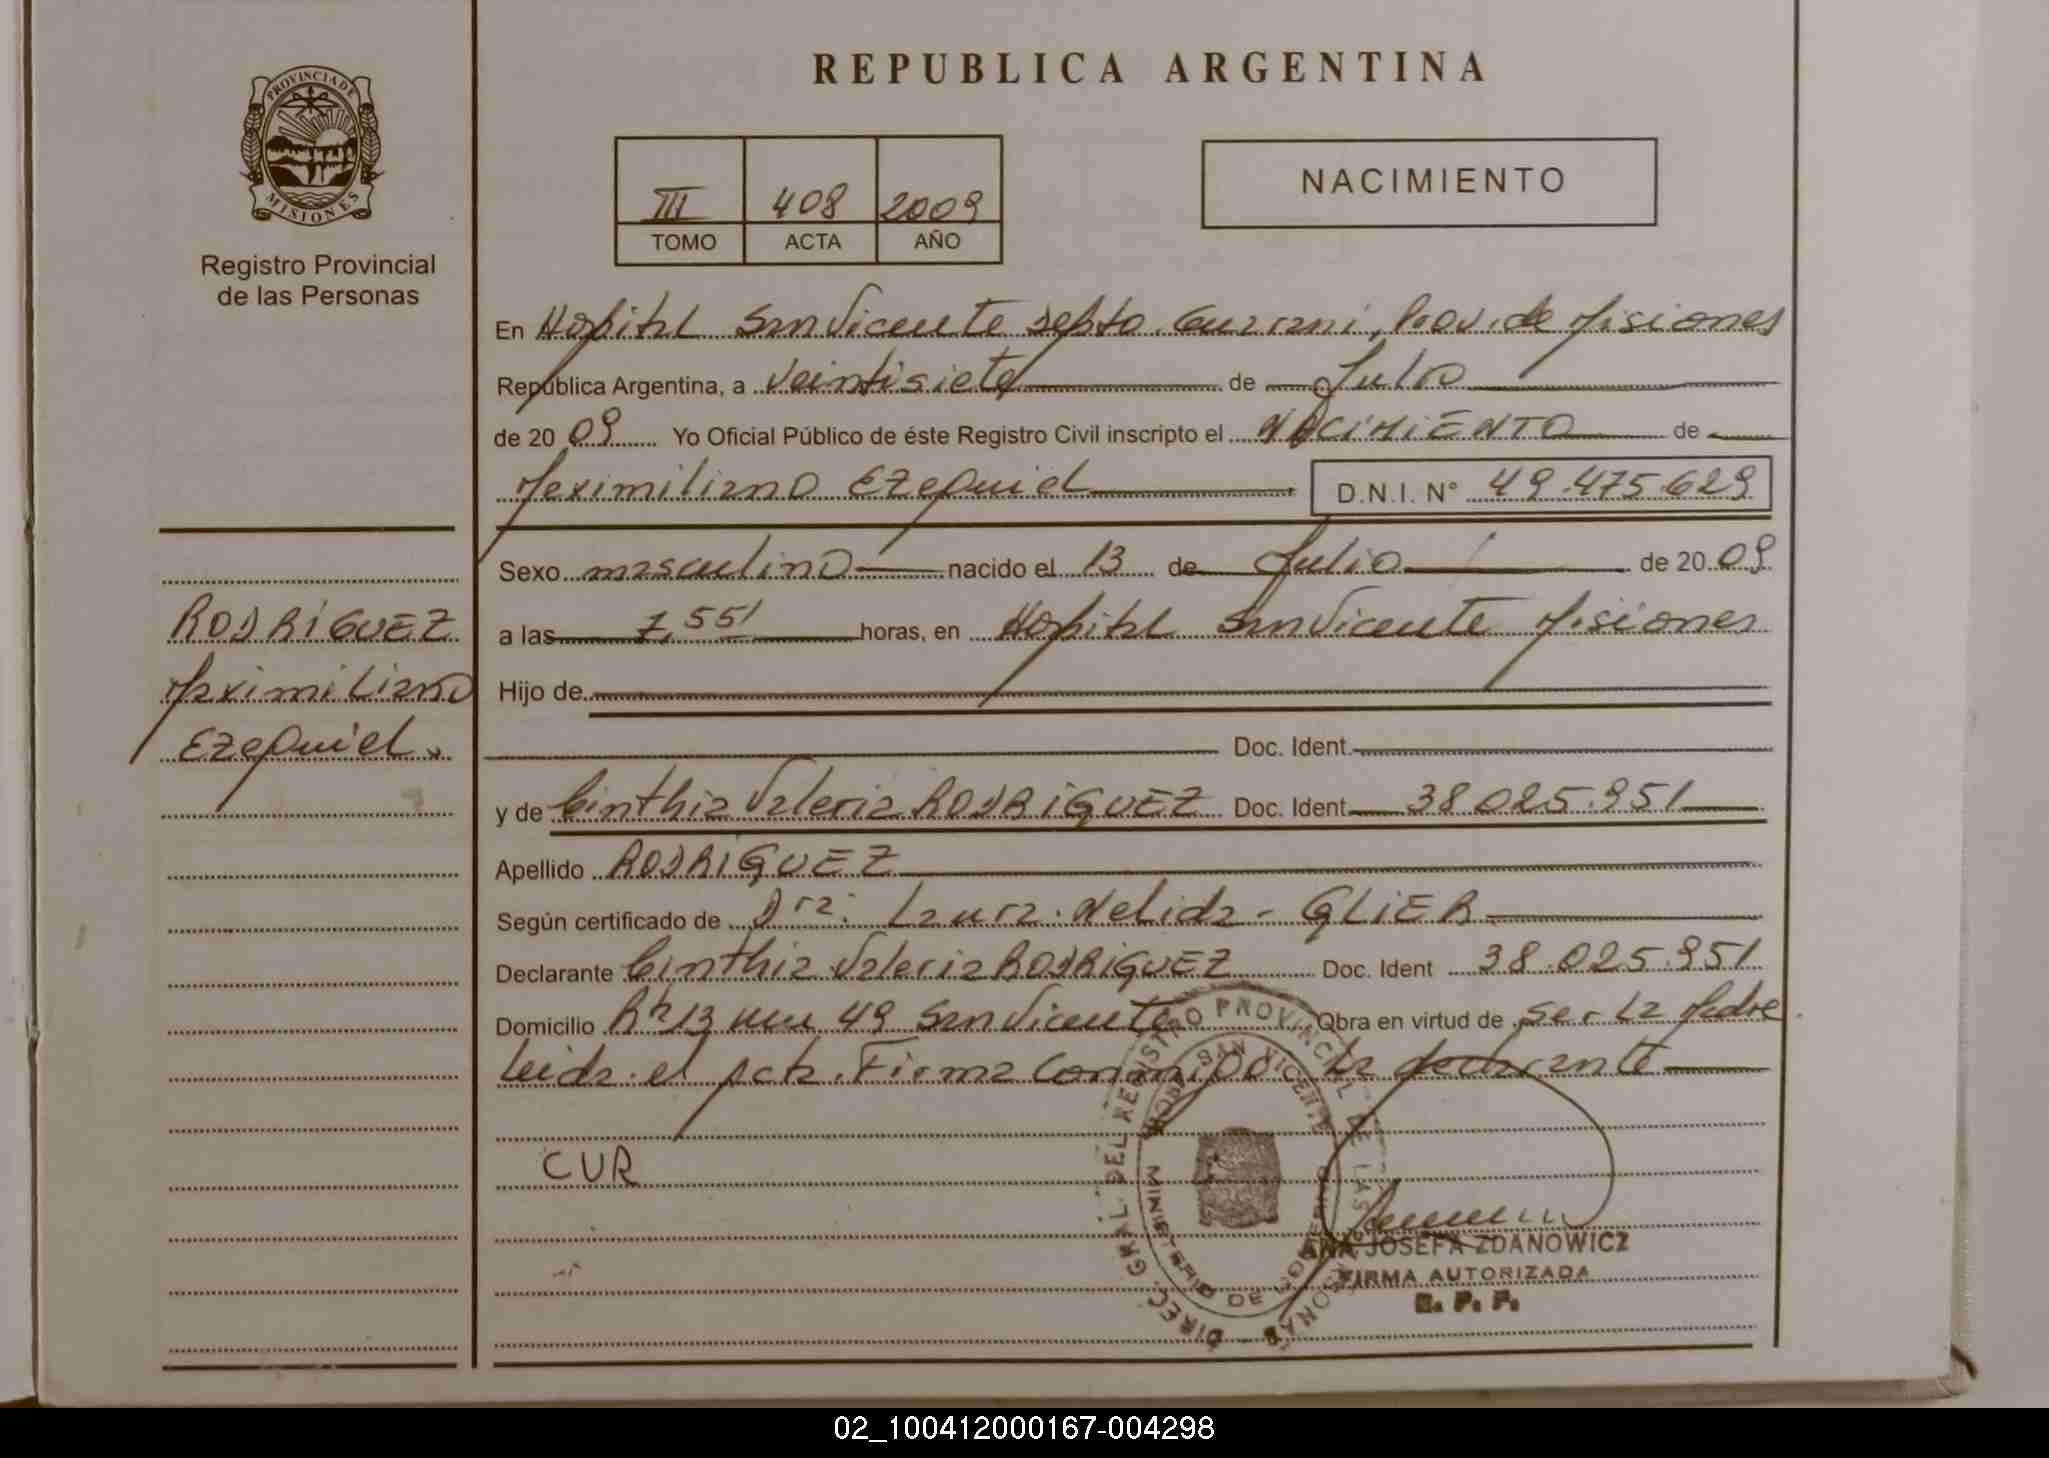 REPUBLICA ARGENTINA
PROVINCIA DE
MISIONES
Registro Provincial
de las Personas
III 408 2009
TOMO ACTA AÑO
NACIMIENTO
En Hospital San Vicente Depto. Guarani, Prov. de Misiones
República Argentina, a Veintisiete de Julio
de 20 09 Yo Oficial Público de éste Registro Civil inscripto el NACIMIENTO de
Maximiliano Ezequiel D.N.I. N° 49.475.629
Sexo masculino nacido el 13 de Julio de 20 09
a las 7,55' horas, en Hospital San Vicente Misiones
Hijo de
Doc. Ident.
y de Cinthia Valeria RODRIGUEZ Doc. Ident 38.025.951
Apellido RODRIGUEZ
Según certificado de Dra: Laura Nelida - GLIER
Declarante Cinthia Valeria RODRIGUEZ Doc. Ident 38.025.951
Domicilio 13 49 San Vicente Obra en virtud de ser la Madre
leida el acta. Firma Conmigo la declarante
CUR
RODRIGUEZ
Maximiliano
Ezequiel
DIREC. GRAL. DEL REGISTRO PROVINCIAL DE LAS PERSONAS
HOSP. SAN VICENTE
MINISTERIO DE GOBIERNO
ANA JOSEFA ZDANOWICZ
FIRMA AUTORIZADA
R. P. P.
02_100412000167-004298